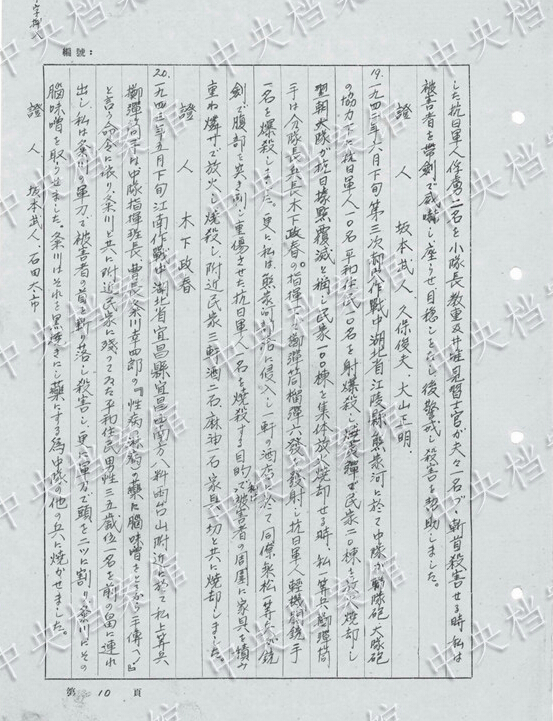 編號：
した抗日軍人俘虜二名を小隊長教重及井堆見習士官が夫々一名づヽ斬首殺害せる時、私は
被害者を帯剣で威嚇し、座らせ、目穏しをなし後警戒し殺害を幇助しました。
證人 坂本武人、久保俊夫、大山正明、
19、一九四三年八月下旬第三次作戦中湖北省江陵縣熊家河に於て中隊が 大隊砲
の協力下に抗日軍人一〇名平和住民一〇名を射爆殺し 民家二〇棟を 焼却し
大隊が抗日據點覆滅と稱し民家一〇〇棟を集体放火焼却せる時、私 一等兵擲彈筒
手は分隊長 長木下政春の指揮下に擲彈筒榴彈六發を發射し抗日軍人輕機関銃手
一名を爆殺しました。更に私は、熊家河部落に侵入し一軒の酒 に於て同僚 一等 が銃
剣で腹部を突き刺し重傷させた抗日軍人一名を焼殺する目的で被害者の周囲に家具を積み
重ね燐寸で放火し焼殺し、附近民家三軒酒二石麻油一石家具一切と共に焼却しました。
證人 木下政春
20、一九四三年五月下旬江南作戦中湖北省宜昌縣宜昌西南方八粁 山附近に於て私上等兵
擲彈筒手は中隊指揮班長、曹長粂川幸四郎の『性病 薬に腦味噌をとるから手傳へ！』
と言う命令に依り、粂川と共に附近民家に残ってゐた平和住民男性三五歳位一名を前の畠に連れ
出し、私は粂川の軍刀で被害者の首を斬り落し殺害し、更に軍刀で頭を二ツに割り粂川はその
腦味噌を取り出しました。粂川はそれを黒焼きにし薬にする為中隊の他の兵に焼かせました。
證人 坂本武人、石田大市
第 10 頁
中央档案馆